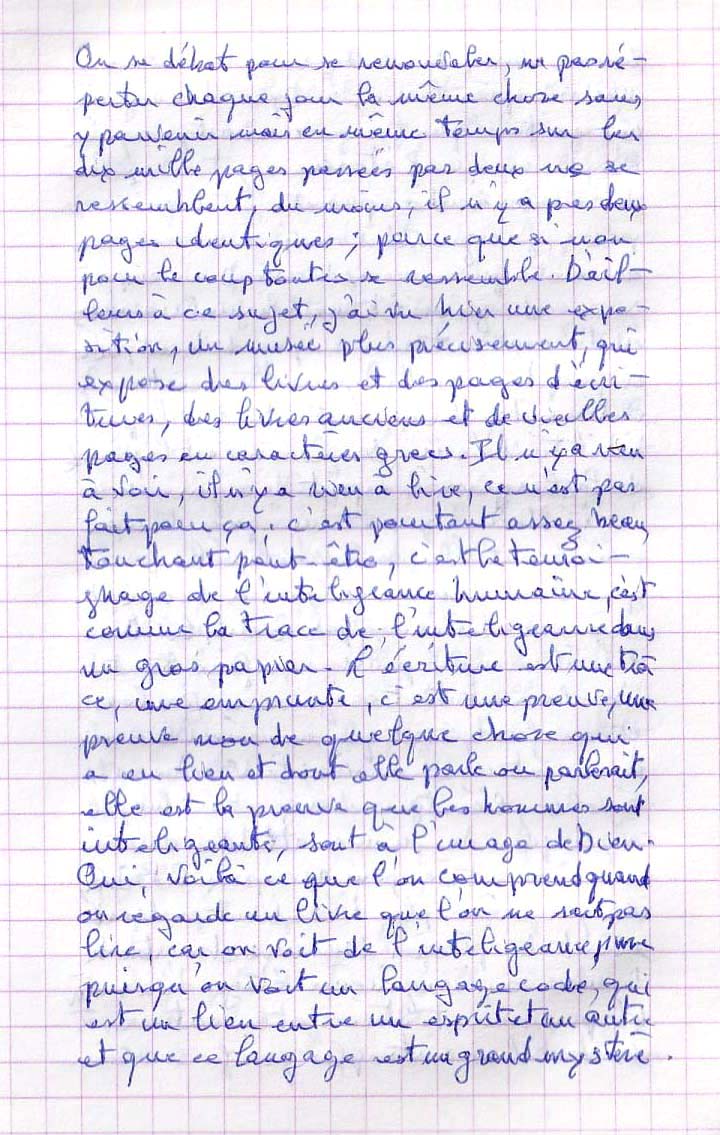 On se débat pour se renouveler, ne pas ré-
péter chaque jour la même chose sans
y parvenir mais en même temps sur les
dix mille pages passées pas deux ne se
ressemblent, du moins, il n'y a pas deux
pages identiques ; parce que si non
pour le coup toutes se ressemble. D'ail-
leurs à ce sujet, j'ai vu hier une expo-
sition, un musée plus précisement, qui
expose des livres et des pages d'écri-
tures, des livres anciens et de vieilles
pages en caractères grecs. Il n'y a rien
à voir, il n'y a rien à lire, ce n'est pas
fait pour ça, c'est pourtant assez beau,
touchant peut-être, c'est le témoi-
gnage de l'inteligeance humaine, c'est
comme la trace de l'inteligeance dans
un gros papier. L'écriture est une tra
ce, une emprunte, c'est une preuve, une
preuve non de quelque chose qui
a eu lieu et dont elle parle ou parlerait,
elle est la preuve que les hommes sont
inteligeants, sont à l'image de Dieu.
Oui, voilà ce que l'on comprend quand
on regarde un livre que l'on ne sait pas
lire, car on voit de l'inteligeance pure
puisqu'on voit un langage codé, qui
est un lien entre un esprit et un autre
et que ce langage est un grand mystère.